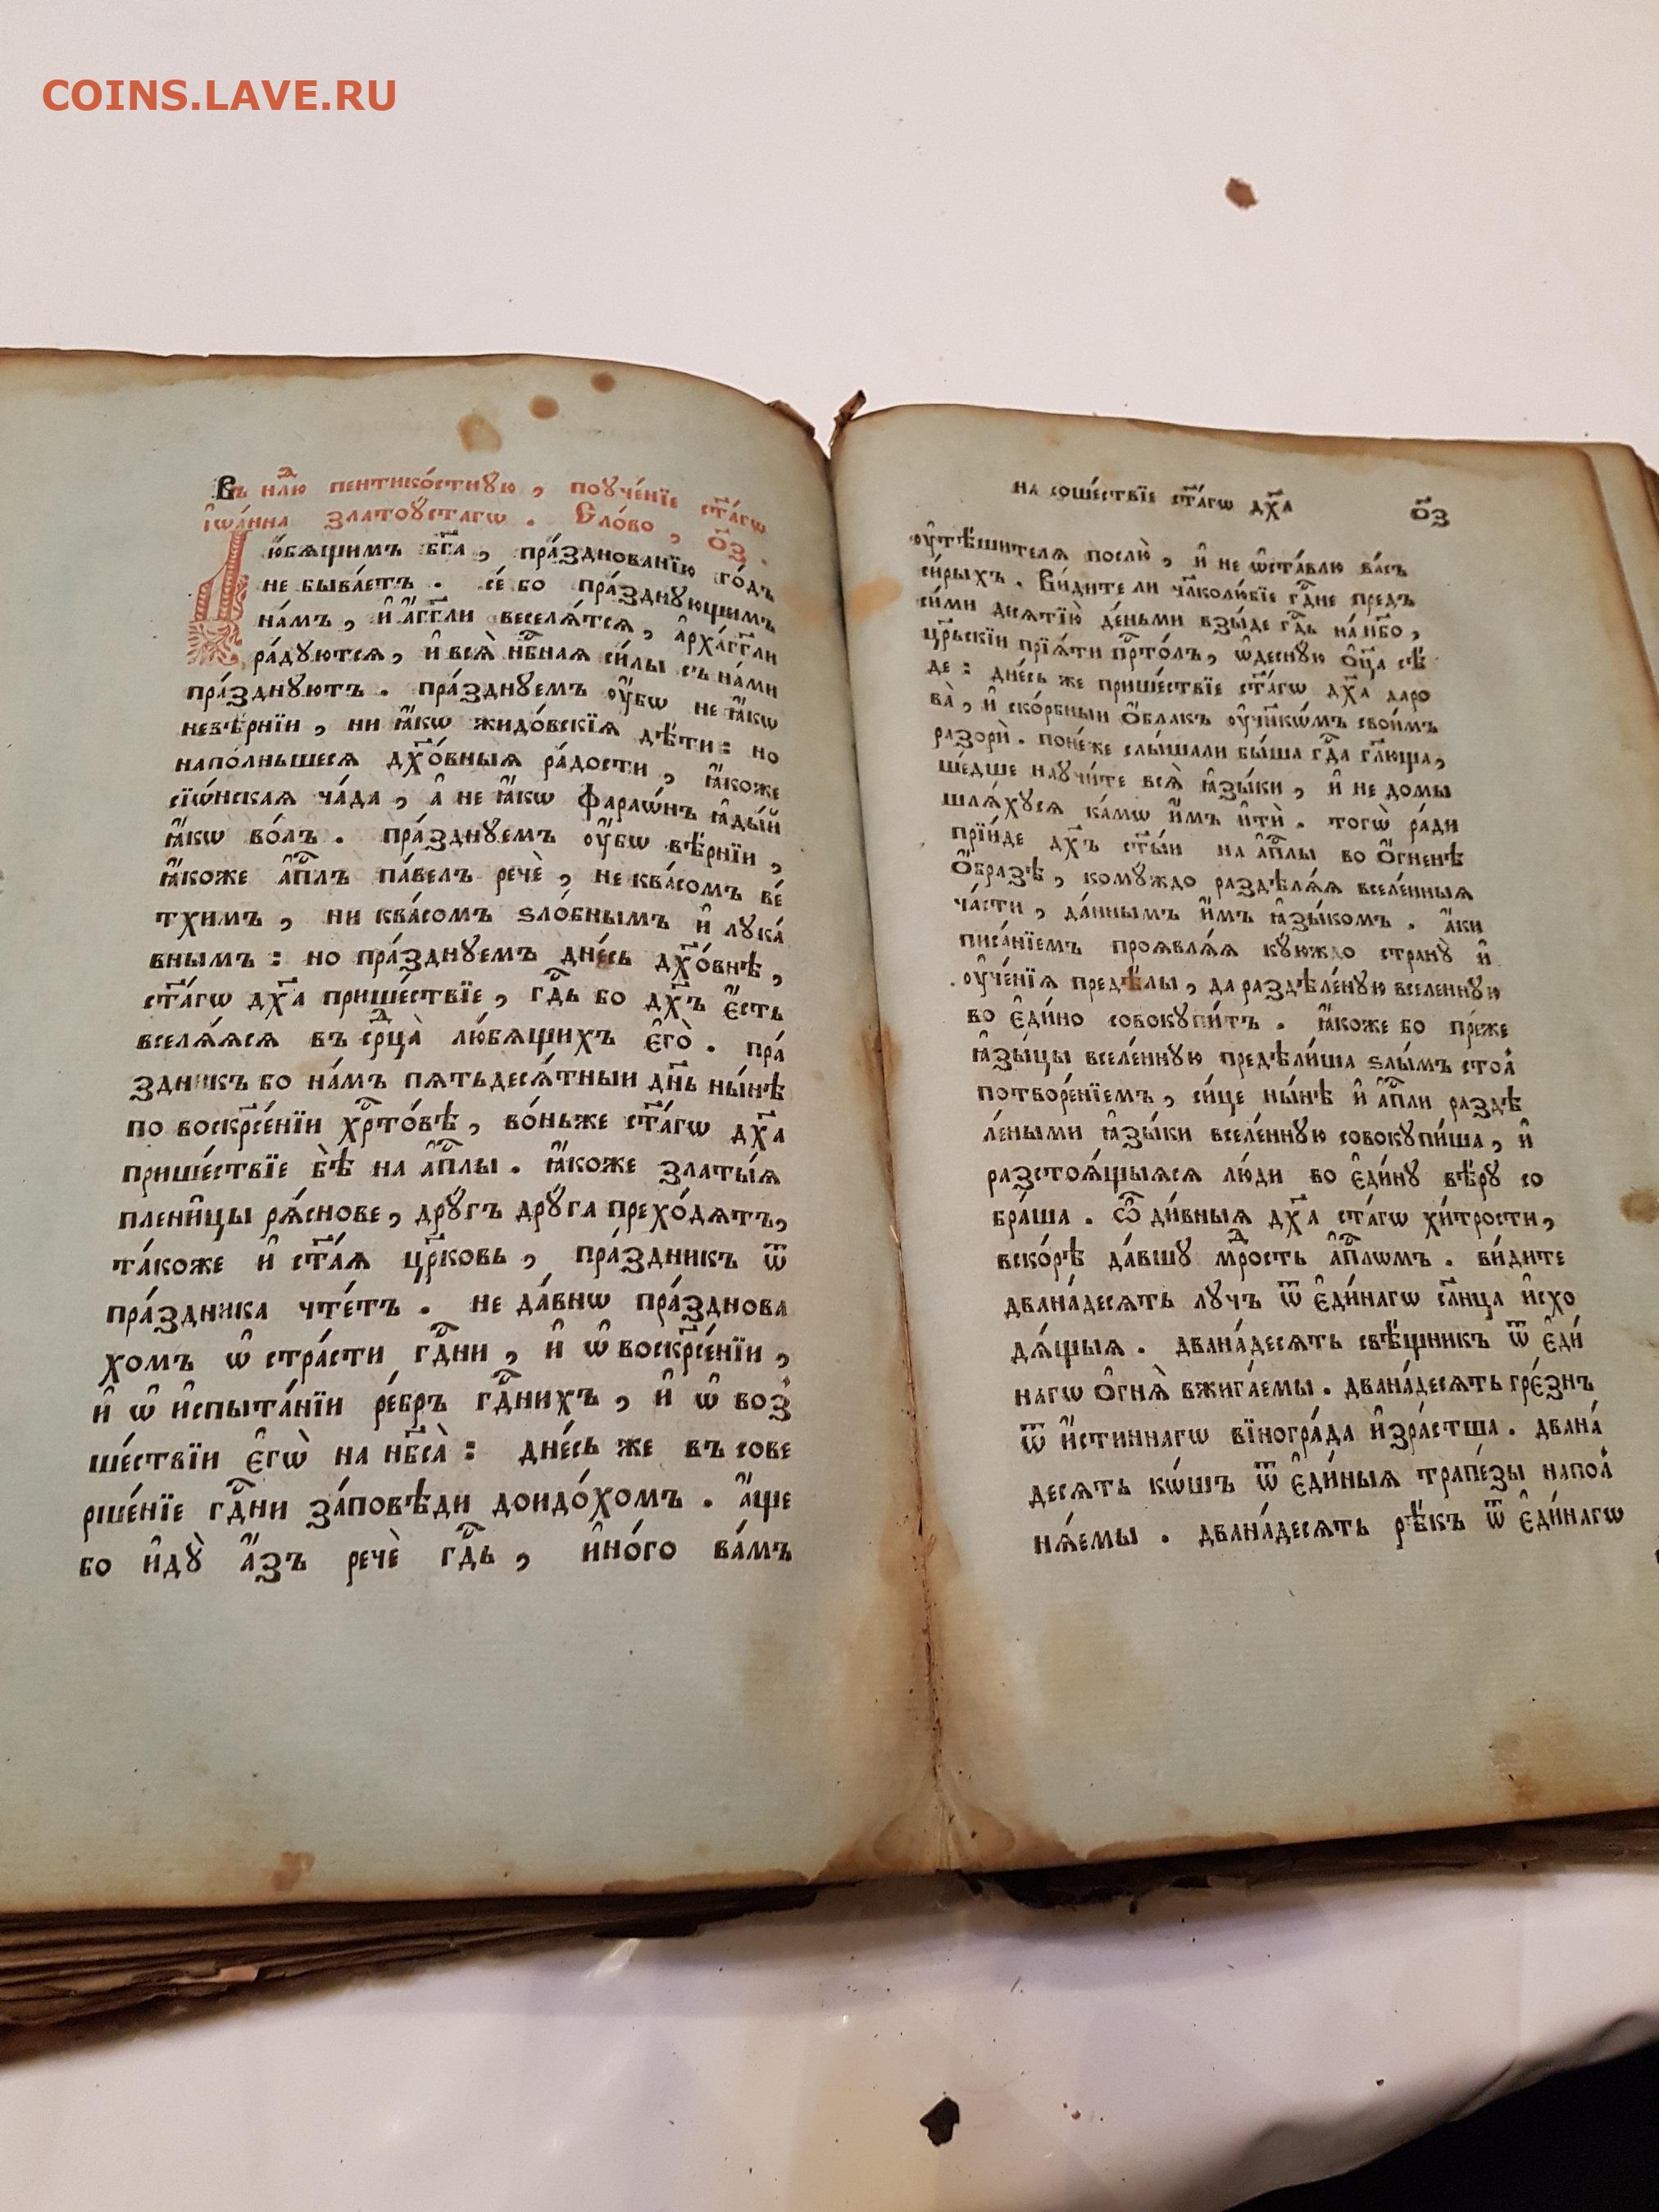 COINS.LAVE.RU
Въ нлⷣю пентико́стнꙋю , поꙋче́нїе ст҃а́гѡ
і҆ѡа́нна златоꙋ́стагѡ . Сло́во , о҃з .
Лю́бѧщимъ бг҃а , пра́зднованїю го́дъ
не быва́етъ . се́ бо пра́зднꙋющимъ
на́мъ , и҆ а҆́гг҃ли веселѧ́тсѧ , а҆рха́гг҃ли
ра́дꙋютсѧ , и҆ всѧ̀ нб҃наѧ си́лы съ на́ми
пра́зднꙋютъ . пра́зднꙋемъ оу҆́бѡ не ꙗ҆́кѡ
невѣ́рнїи , ни ꙗ҆́кѡ жидо́вскїѧ дѣ́ти : но
напо́лньшесѧ дх҃о́вныѧ ра́дости , ꙗ҆́коже
сїѡ́нскаѧ ча́да , а҆ не ꙗ҆́кѡ фараѡ́нъ ꙗ҆ды́й
ꙗ҆́кѡ во́лъ . пра́зднꙋемъ оу҆́бѡ вѣ́рнїи ,
ꙗ҆́коже а҆п҃лъ па́велъ речѐ , не ква́сомъ ве́
тхимъ , ни ква́сомъ ѕло́бнымъ и҆ лꙋка́
внымъ : но пра́зднꙋемъ дне́сь дх҃о́внѣ ,
ст҃а́гѡ дх҃а прише́ствїе , гдⷭ҇ь бо дх҃ъ є҆́сть
вселѧ́ѧсѧ въ срⷣца̀ лю́бѧщихъ є҆го̀ . пра́
здникъ бо на́мъ пѧтьдесѧ́тныи дн҃ь ны́нѣ
по воскрⷭ҇е́нїи хрⷭ҇то́вѣ , во́ньже ст҃а́гѡ дх҃а
прише́ствїе бѣ̀ на а҆пⷭ҇лы . ꙗ҆́коже златы́ѧ
плени҆́цы рѧ́снове , дрꙋ́гъ дрꙋ́га прехо́дѧтъ ,
та́коже и҆ ст҃а́ѧ цр҃ковь , пра́здникъ ѿ
пра́здника чте́тъ . не да́внѡ пра́зднова
хомъ ѡ҆ стра́сти гдⷭ҇ни , и҆ ѡ҆ воскрⷭ҇е́нїи ,
и҆ ѡ҆ и҆спыта́нїи ре́бръ гдⷭ҇нихъ , и҆ ѡ҆ воз̾
ше́ствїи є҆гѡ̀ на нб҃са̀ : дне́сь же въ сове
рше́нїе гдⷭ҇ни за́повѣди доидо́хомъ . а҆́ще
бо и҆дꙋ̀ а҆́зъ речѐ гдⷭ҇ь , и҆но́го ва́мъ
на соше́ствїе ст҃а́гѡ дх҃а о҃з
оу҆тѣ́шителѧ послю̀ , и҆ не ѡ҆ста́влю ва́съ
си́рыхъ . Ви́дите ли чл҃колю́бїе гдⷭ҇не предъ
си́ми десѧтїю̀ де́ньми взы́де гдⷭ҇ь на́ нб҃о ,
цр҃ьскїи прїѧ́ти прⷭ҇то́лъ , ѡ҆деснꙋю о҆ц҃а сѣ́
де : дне́сь же прише́ствїе ст҃а́гѡ дх҃а даро
ва̀ , и҆ ско́рбныи о҆́блакъ оу҆чн҃кѡ́мъ свои́мъ
разорѝ . поне́же слы́шали бы́ша гдⷭ҇а гл҃юща ,
ше́дше наꙋчи́те всѧ̀ ꙗ҆зы́ки , и҆ не домы
шлѧ́хꙋсѧ ка́мѡ и҆́мъ и҆тѝ . тогѡ̀ ра́ди
прїи́де дх҃ъ ст҃ы́и на а҆пⷭ҇лы во о҆́гненѣ
о҆́бразѣ , комꙋ́ждо раздѣлѧ́ѧ вселе́нныѧ
ча́сти , да́ннымъ и҆́мъ ꙗ҆зы́комъ . а҆́ки
писа́нїемъ проѧвлѧ́ѧ кꙋ́южⷣо странꙋ̀ и҆
оу҆че́нїѧ предѣ́лы , да раздѣле́нꙋю вселеннꙋю
во є҆ди́но совокꙋпи́тъ . ꙗ҆́коже бо пре́же
ꙗ҆зы́цы вселе́ннꙋю предѣли́ша ѕлы́мъ стол̾
потворе́нїемъ , си́це ны́нѣ и҆ а҆пⷭ҇ли раздѣ
ле́ными ꙗ҆зы́ки вселе́ннꙋю совокꙋпи́ша , и҆
разстоѧ́щыѧсѧ лю́ди во є҆ди́нꙋ вѣ́рꙋ со
бра́ша . ѽ ди́вныѧ дх҃а ста́гѡ хи́трости ,
вско́рѣ да́вшꙋ мⷣрость а҆пⷭ҇лѡмъ . ви́дите
двана́десѧть лꙋчъ ѿ є҆ди́нагѡ сл҃нца и҆схо
дѧ́щыѧ . двана́десѧть свѣ́щникъ ѿ є҆ди́
нагѡ о҆гнѧ̀ вжига́емы . двана́десѧть гре́знъ
ѿ и҆́стиннагѡ вїногра́да и҆зра́стша . двана́
десѧть кѡ́шъ ѿ є҆ди́ныѧ трапе́зы напол̾
нѧ́емы . двана́десѧть рѣ́къ ѿ є҆ди́нагѡ